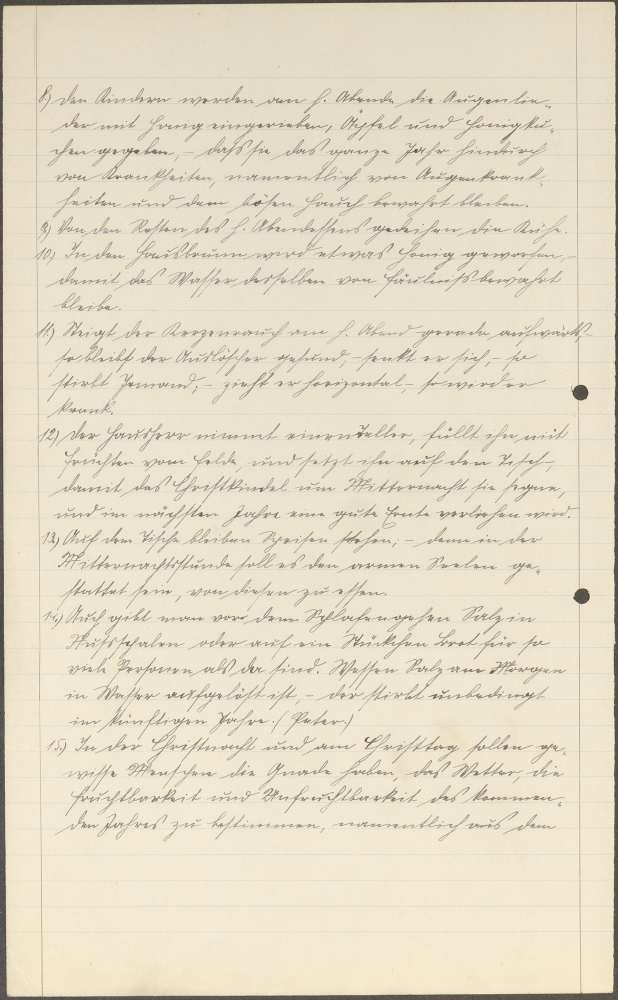 8) Den Kindern werden am h. Abende die Augenlie-
der mit Honig eingerieben, Äpfel und Honigku-
chen gegeben, – daß sie das ganze Jahr hindurch
von Krankheiten, namentlich von Augenkrank-
heiten und dem bösen Hauch bewahrt bleiben.
9) Von den Resten des h. Abendessens gedeihen die Kühe.
10) In den Hausbrunn wird etwas Honig geworfen, –
damit das Wasser desselben von Fäulniß bewahrt
bleibe.
11) Steigt der Kerzenrauch am h. Abend gerade aufwärts, –
so bleibt der Auslöscher gesund, – senkt er sich, – so
stirbt Jemand; – zieht er horizontal, – so wird er
krank.
12) Der Hausherr nimmt einen Teller, füllt ihn mit
Früchten vom Felde, und setzt ihn auf den Tisch,
damit das Christkindel um Mitternacht sie segne,
und im nächsten Jahre eine gute Ernte verliehen wird.
13) Auf dem Tische bleiben Speisen stehen; – denn in der
Mitternachtsstunde soll es den armen Seelen ge-
stattet sein, von diesen zu essen.
14) Auch gibt man vor dem Schlafengehen Salz in
Nußschalen oder auf ein Stückchen Brot für so
viele Personen, als da sind. Wessen Salz am Morgen
in Wasser aufgelöst ist, – der stirbt unbedingt
im künftigen Jahre. (Peter.)
15) In der Christnacht und am Christtag sollen ge-
wisse Menschen die Gnade haben, das Wetter, die
Fruchtbarkeit und Unfruchtbarkeit des kommen-
den Jahres zu bestimmen, namentlich aus dem